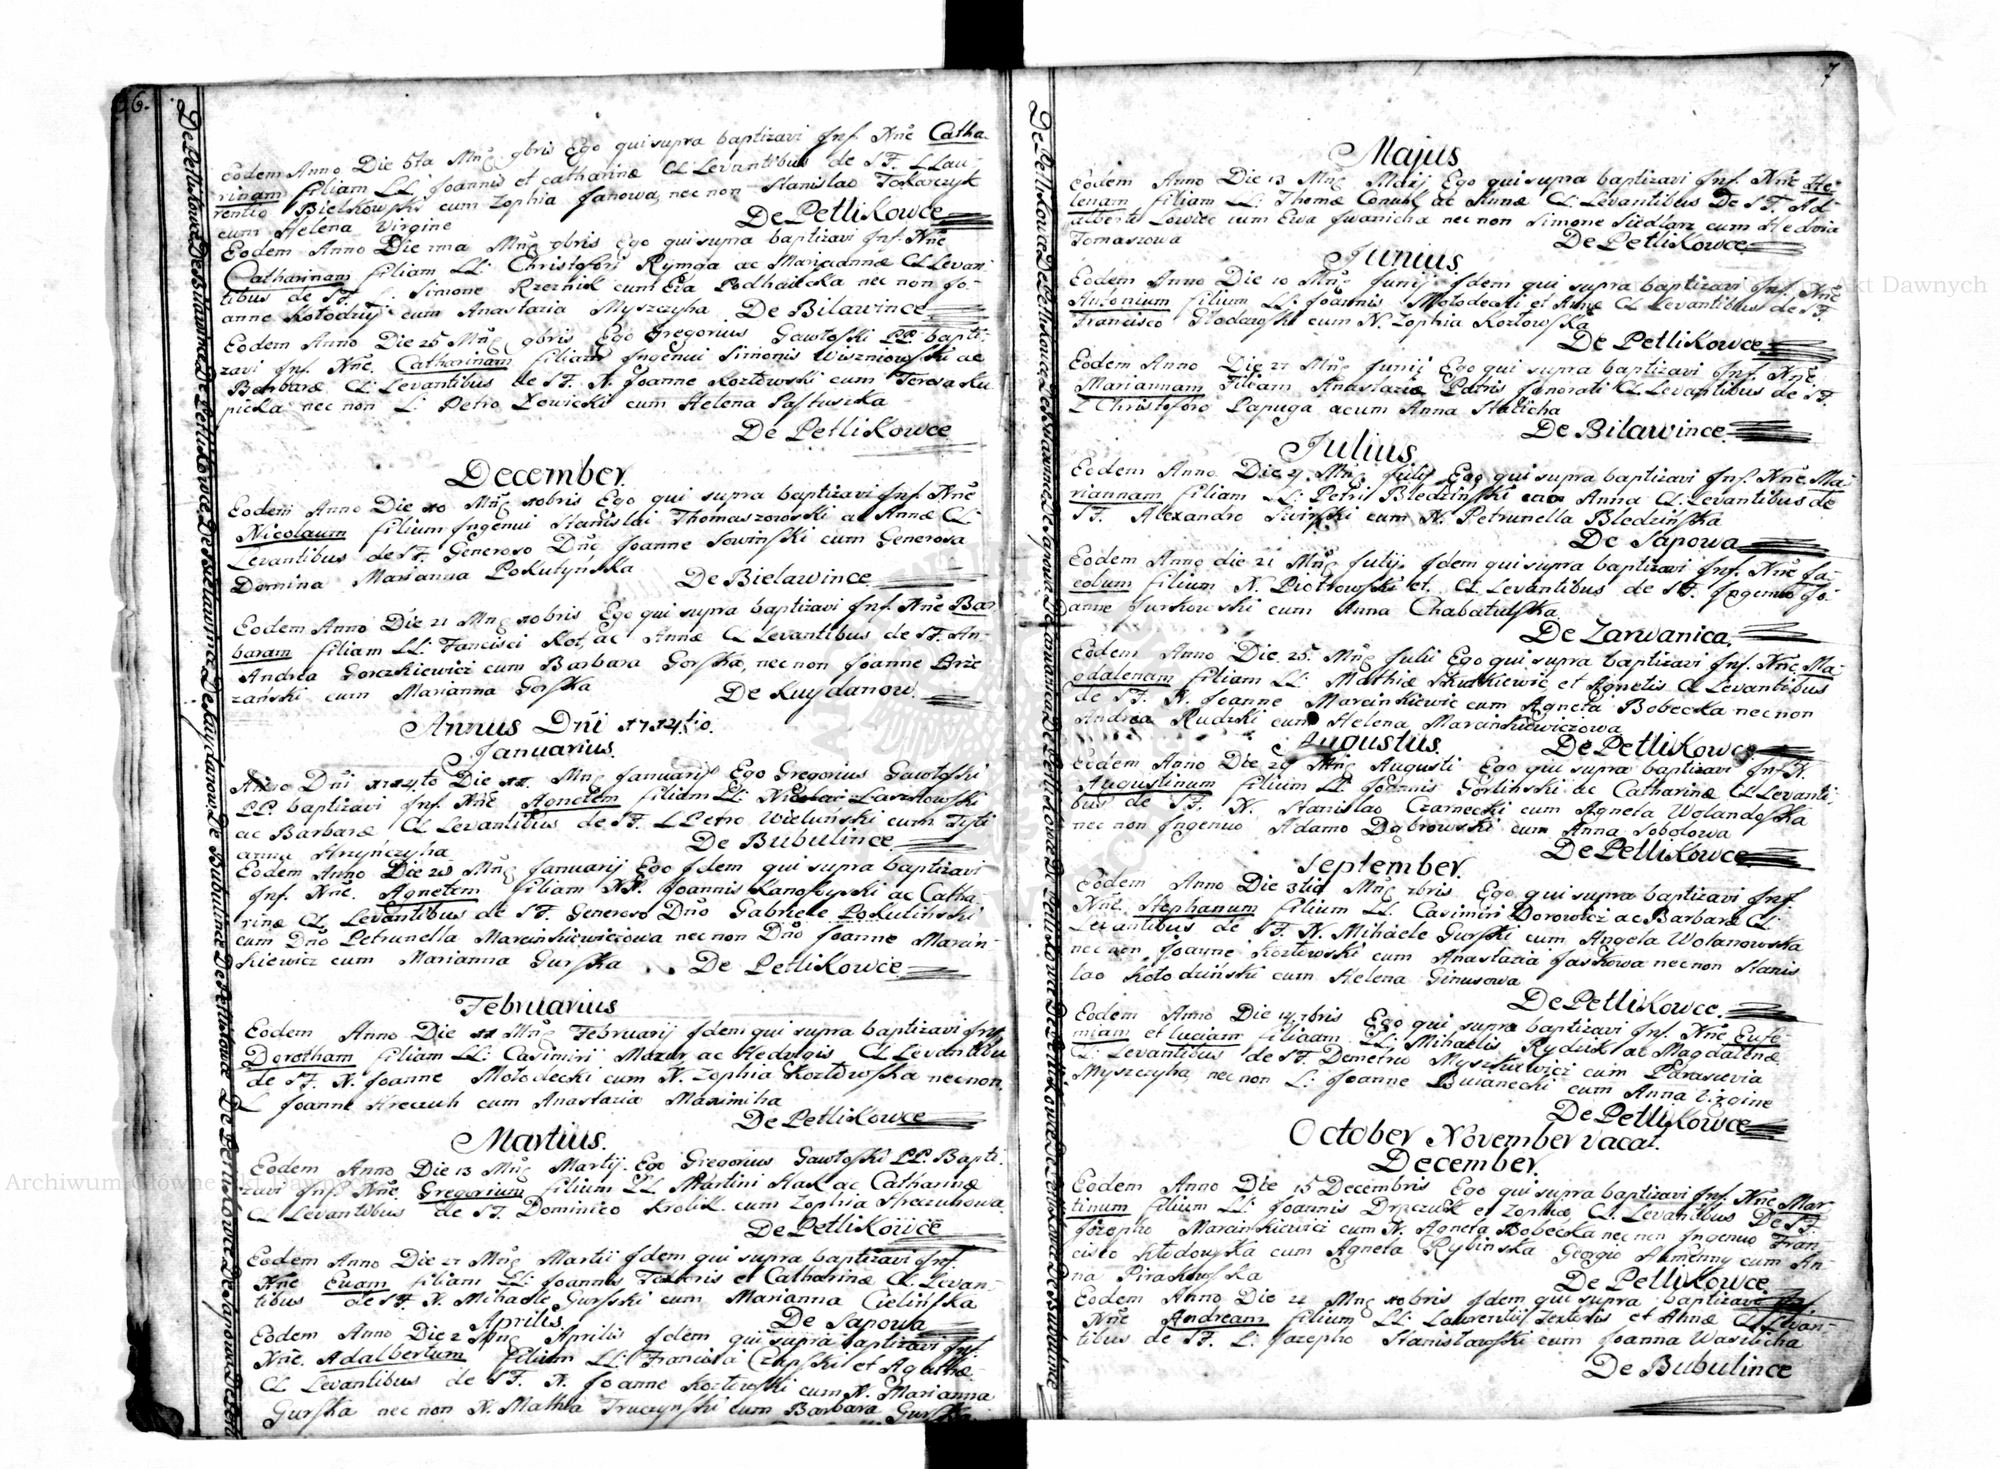 6.
Eodem Anno Die 6ta Mnc 9bris Ego qui supra baptizavi Inf. Nñe Catha-
rinam filiam LL. Joannis et Catharinæ CL Levantibus de S.F. L Lau-
rentio Bielkowski cum Zophia Janowa, nec non Stanislao Tokarczyk
cum Helena Virgine De Petlikowce
Eodem Anno Die 11ma Mnc 9bris Ego qui supra baptizavi Inf. Nñe
Catharinam filiam LL: Christofori Rymga ac Mariannæ CL Levan-
tibus de S.F. L. Simone Rzeznik cum Eva Podhaicka nec non Jo-
anne Kołodziy cum Anastazia Myszczyha De Bilawince
Eodem Anno Die 25 Mnc 9bris Ego Gregorius Gawłoski P.P. bapti-
zavi Inf. Nñe. Catharinam filiam Ingenui Simonis Wiszniowski ac
Barbaræ CL: Levantibus de S.F. N. Joanne Kozłowski cum Teresa Ku
picka nec non L: Petro Łowicki cum Helena Pastuszka
De Petlikowce
December.
Eodem Anno Die 10 Mnc 10bris Ego qui supra baptizavi Inf. Nñe
Nicolaum filium Ingenui Stanislai Thomaszowski ac Annæ CL:
Levantibus de S.F. Generoso Dño Joanne Sowinski cum Generosa
Domina Marianna Pokutyńska De Bielawince
Eodem Anno Die 21 Mnc 10bris Ego qui supra baptizavi Inf. Nñe Bar
baram filiam LL: Fancisci Kot, ac Annæ CL Levantibus de S.F. An-
Andrea Gorczkiewicz cum Barbara Gorska, nec non Joanne Brze
zański cum Marianna Gorska De Kuydanow.
Annus Dñi 1714to.
Januarius.
Anno Dñi 1714to Die 11 Mnc Januarij Ego Gregorius Gawłoski
P.P. baptizavi Inf. Nñe Agnetem filiam LL: Nicolai Laszkowski
ac Barbaræ CL Levantibus de S.F. L Petro Wieluński cum Justi
anna Hrzyńczyha De Bubulince
Eodem Anno Die 20 Mnc Januarij Ego Idem qui supra baptizavi
Inf. Nñe. Agnetem filiam NN. Joannis Kanofoyski ac Catha-
rinæ CL Levantibus de S.F. Generoso Dño Gabriele Pokutinski
cum Dño Petrunella Marcinkiewiczowa nec non Dño Joanne Marcin-
kiewicz cum Marianna Gurska De Petlikowce
Februarius
Eodem Anno Die 11 Mnc Februarij Idem qui supra baptizavi Inf.
Dorotham filiam LL: Casimiri Mazur ac Hedvigis CL Levantibu
de S.F. N. Joanne Mołodecki cum N. Zophia Kozłowska nec non
L Joanne Hreczuh cum Anastazia Maximiha
De Petlikowce
Martius.
Eodem Anno Die 13 Mnc Martij. Ego Gregorius Gawłoski P.P. Bapti-
zavi Inf. Nñe. Gregorium filium LL Martini Hak ac Catharinæ
CL Levantibus de S.F. Dominico Krolik cum Zophia Hreczuhowa
De Petlikowce
Eodem Anno Die 27 Mnc Martii Idem qui supra baptizavi Inf.
Nñe Evam filiam LL: Joannis Textoris et Catharinæ CL Levan-
tibus de S.F. N. Mihaele Gurski cum Marianna Cielińska
Aprilis De Sapowa
Eodem Anno Die 2 Mnc Aprilis Idem qui supra baptizavi Inf.
Nñe. Adalbertum filium LL: Francisci Czapski et Agathæ
CL Levantibus de S.F. N. Joanne Kozłowski cum N. Marianna
Gurska nec non N. Mathia Truczynski cum Barbara Gurska
7
Majus
Eodem Anno Die 13 Mnc Maij Ego qui supra baptizavi Inf. Nñe He-
lenam filiam LL: Thomæ Conwk ac Annæ CL: Levantibus De S.F. Ad-
alberto Lowicz cum Ewa Jwanicha nec non Simone Siedlarz cum Hedvia
Tomaszowa De Petlikowce
Junius
Eodem Anno Die 10 Mnc Junij Idem qui supra baptizavi Inf. Nñe
Antonium filium LL: Joannis Mołodecki et Annæ CL Levantibus de S.F.
Francisco Głodowski cum N. Zophia Kozłowska
De Petlikowce
Eodem Anno Die 27 Mnc Junij Ego qui supra baptizavi Inf. Nñe
Mariannam Filiam Anastaziæ Patris Ignorati CL Levantibus de S.F.
L Christoforo Papuga acum Anna Halicha
De Bilawince
Julius
Eodem Anno Die 27 Mnc Julij Ego qui supra baptizavi Inf. Nñe Ma-
riannam filiam LL: Petri Bledzinski Anna CL: Levantibus de
S.F. Alexandro Swinski cum N. Petrunella Bledzińska
De Sapowa
Eodem Anno die 21 Mnc Julij Idem qui supra baptizavi Inf. Nñe Ja-
cobum filium N. Piotrowski et CL Levantibus de S.F. Ingenuo Jo-
anne Jurkowski cum Anna Chabatulska
De Zarwanica.
Eodem Anno Die 25. Mnc Julii Ego qui supra baptizavi Inf. Nñe Ma-
gdalenam filiam LL: Mathiæ Skutkiewic et Agnetis CL Levantibus
de S.F. N. Joanne Marcinkiewic cum Agneta Bobecka nec non
Andrea Rudzki cum Helena Marcinkiewiczowa
Augustus. De Petlikowce
Eodem Anno Die 29 Mnc Augusti Ego qui supra baptizavi Inf. N.
Augustinum filium LL Joannis Gorlinski ac Catharinæ CL Levanti-
bus de S.F. N. Stanislao Czarnecki cum Agneta Wolandoska
nec non Ingenuo Adamo Dąbrowski cum Anna Sobolowa
De Petlikowce
September.
Eodem Anno Die 3tia Mnc 7bris Ego qui supra baptizavi Inf
Nñe. Stephanum filium LL. Casimiri Dorowicz ac Barbaræ CL:
Levantibus de S.F. N. Mihaele Gurski cum Angela Wolanowska
nec non Joanne Kozłowski cum Anastazia Jaskowa nec non Stanis
lao Kołodziński cum Helena Ginusowa
De Petlikowce.
Eodem Anno Die 14 7bris Ego qui supra baptizavi Inf. Nñe Eufe-
miam et Luciam filiaam LL: Mihaelis Rydzik ac Magdalenæ
CL: Levantibus de S.F. Demetrio Myszkiewicz cum Parascevia
Myszczyha, nec non L: Joanne Buianecki cum Anna Virgine
De Petlikowce
October November vacat.
December.
Eodem Anno Die 15 Decembris Ego qui supra baptizavi Inf. Nñe Mar
tinum filium LL: Joannis Drzczuk et Zophiæ CL. Levantibus De S.F.
Jozepho Marcinkiewicz cum N. Agneta Bobecka nec non Ingenuo Fran
cisco Kłodowska cum Agneta Rybinska Georgio Humenny cum An-
na Pirakowska De Petlikowce
Eodem Anno Die 22 Mnc 10bris Idem qui supra baptizavi Inf
Nñe Andream filium LL: Laurentij Textoris et Annæ CL Levan-
tibus de S.F. L: Jozepho Stanisławski cum Joanna Wasilicha
De Bubulince
Archiwum Główne Akt Dawnych